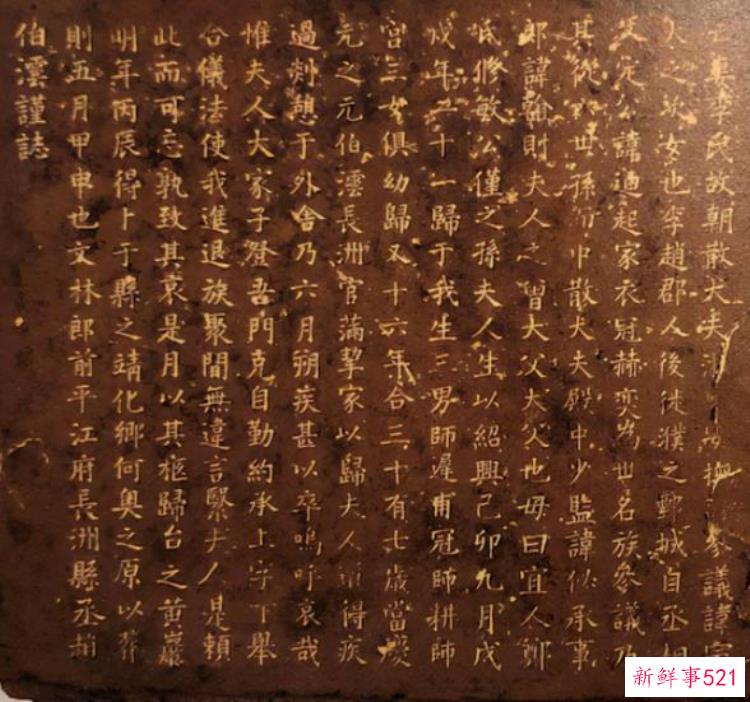 李氏故朝散大夫撫參議諱宗
之次女也李趙郡人後徙濮之鄄城自丞相
文定公諱迪起家衣冠赫奕為世名族參議乃
其從世孫而中散大夫殿中少監諱佖承事
郎諱翰則夫人之曾大父大父也母曰宜人鄭
氏修敏公僅之孫夫人生以紹興己卯九月戊
戌年二十一歸于我生三男師遲甫冠師耕師
宮三女俱幼歸又十六年合三十有七歲當慶
元之元伯澐長洲官滿挈家以歸夫人適得疾
過剡憩于外舍乃六月朔疾甚以卒嗚呼哀哉
惟夫人大家子登吾門克自勤約承上字下舉
合儀法使我進退族聚間無違言繄夫人是賴
此而可忘孰致其哀是月以其柩歸台之黃巖
明年丙辰得卜于縣之靖化鄉何奥之原以葬
則五月甲申也文林郎前平江府長洲縣丞趙
伯澐謹誌
新鲜事521